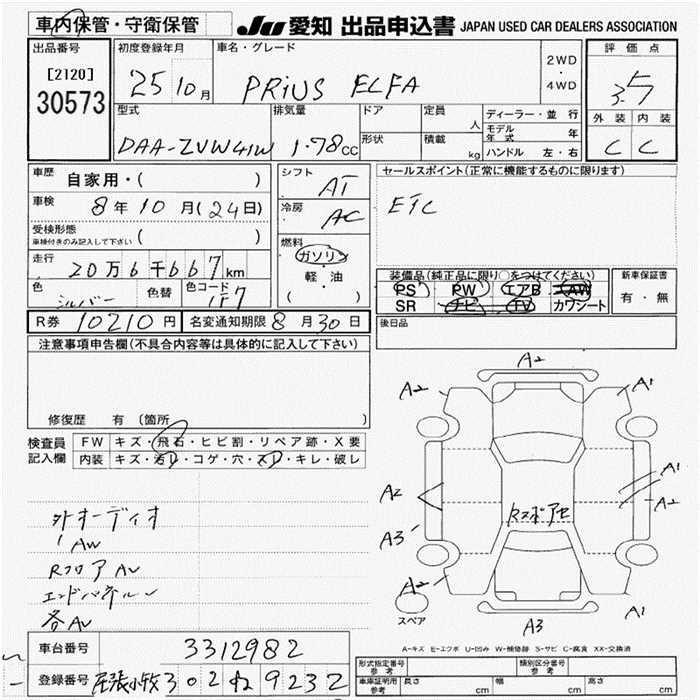 車内保管・守衛保管
JU 愛知 出品申込書 JAPAN USED CAR DEALERS ASSOCIATION
出品番号
[2120]
30573
初度登録年月
25 10月
車名・グレード
PRIUS ELFA
2WD
・
4WD
評価点
3.5
外装 内装
C C
型式
DAA-ZVW41W
排気量
1.78cc
ドア
形状
定員
人
積載
kg
ディーラー・並行
モデル年式 年
ハンドル 左・右
車歴
自家用・( )
車検
8年10月(24日)
受検形態
車検付きのみ記入して下さい ( )
走行
20万6千667km
色
シルバー
色替
色コード
1F7
シフト
AT
冷房
AC
燃料
ガソリン
軽・油
( )
セールスポイント(正常に機能するものに限ります)
ETC
装備品(純正品に限り○をつけてください)
PS PW エアB AW
SR ナビ TV カワシート
新車保証書
有・無
後日品
R券 10210円 名変通知期限 8月30日
注意事項申告欄(不具合内容等は具体的に記入して下さい)
修復歴 有 (箇所 )
検査員
記入欄
FW キズ・飛石・ヒビ割・リペア跡・X要
内装 キズ・汚レ・コゲ・穴・スレ・キレ・破レ
外オーディオ
AW
Rフロア AU
エンドパネル
各AU
A2
A2
A1
A2
A3
A2
A2
A1
A3
スペア
A-キズ E-エクボ U-凹み W-補修跡 S-サビ C-腐食 XX-交換済
車台番号 3312982
登録番号 尾張小牧 302 ね 9232
形式指定番号
参考
類別区分番号
参考
車庫証明用
参考
長さ cm 幅 cm 高さ cm